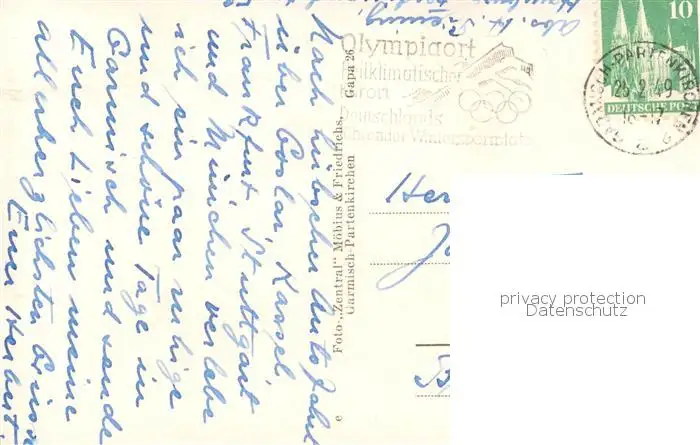 Abs. H.
Nach hübscher Autofahrt
über Goslar, Kassel
Frankfurt, Stuttgart
und München verlebe
ich ein paar ruhige
und schöne Tage in
Garmisch und sende
Euch Lieben meine
allerherzlichsten Grüsse
Euer Herbert
e Foto-„Zentral" Möbius & Friedrichs, Gapa 26
Garmisch-Partenkirchen
Olympiaort
heilklimatischer
Kurort
Deutschlands
führender Wintersportplatz
GARMISCH-PARTENKIRCHEN
23.2.49
10
DEUTSCHE POST
Her
privacy protection
Datenschutz